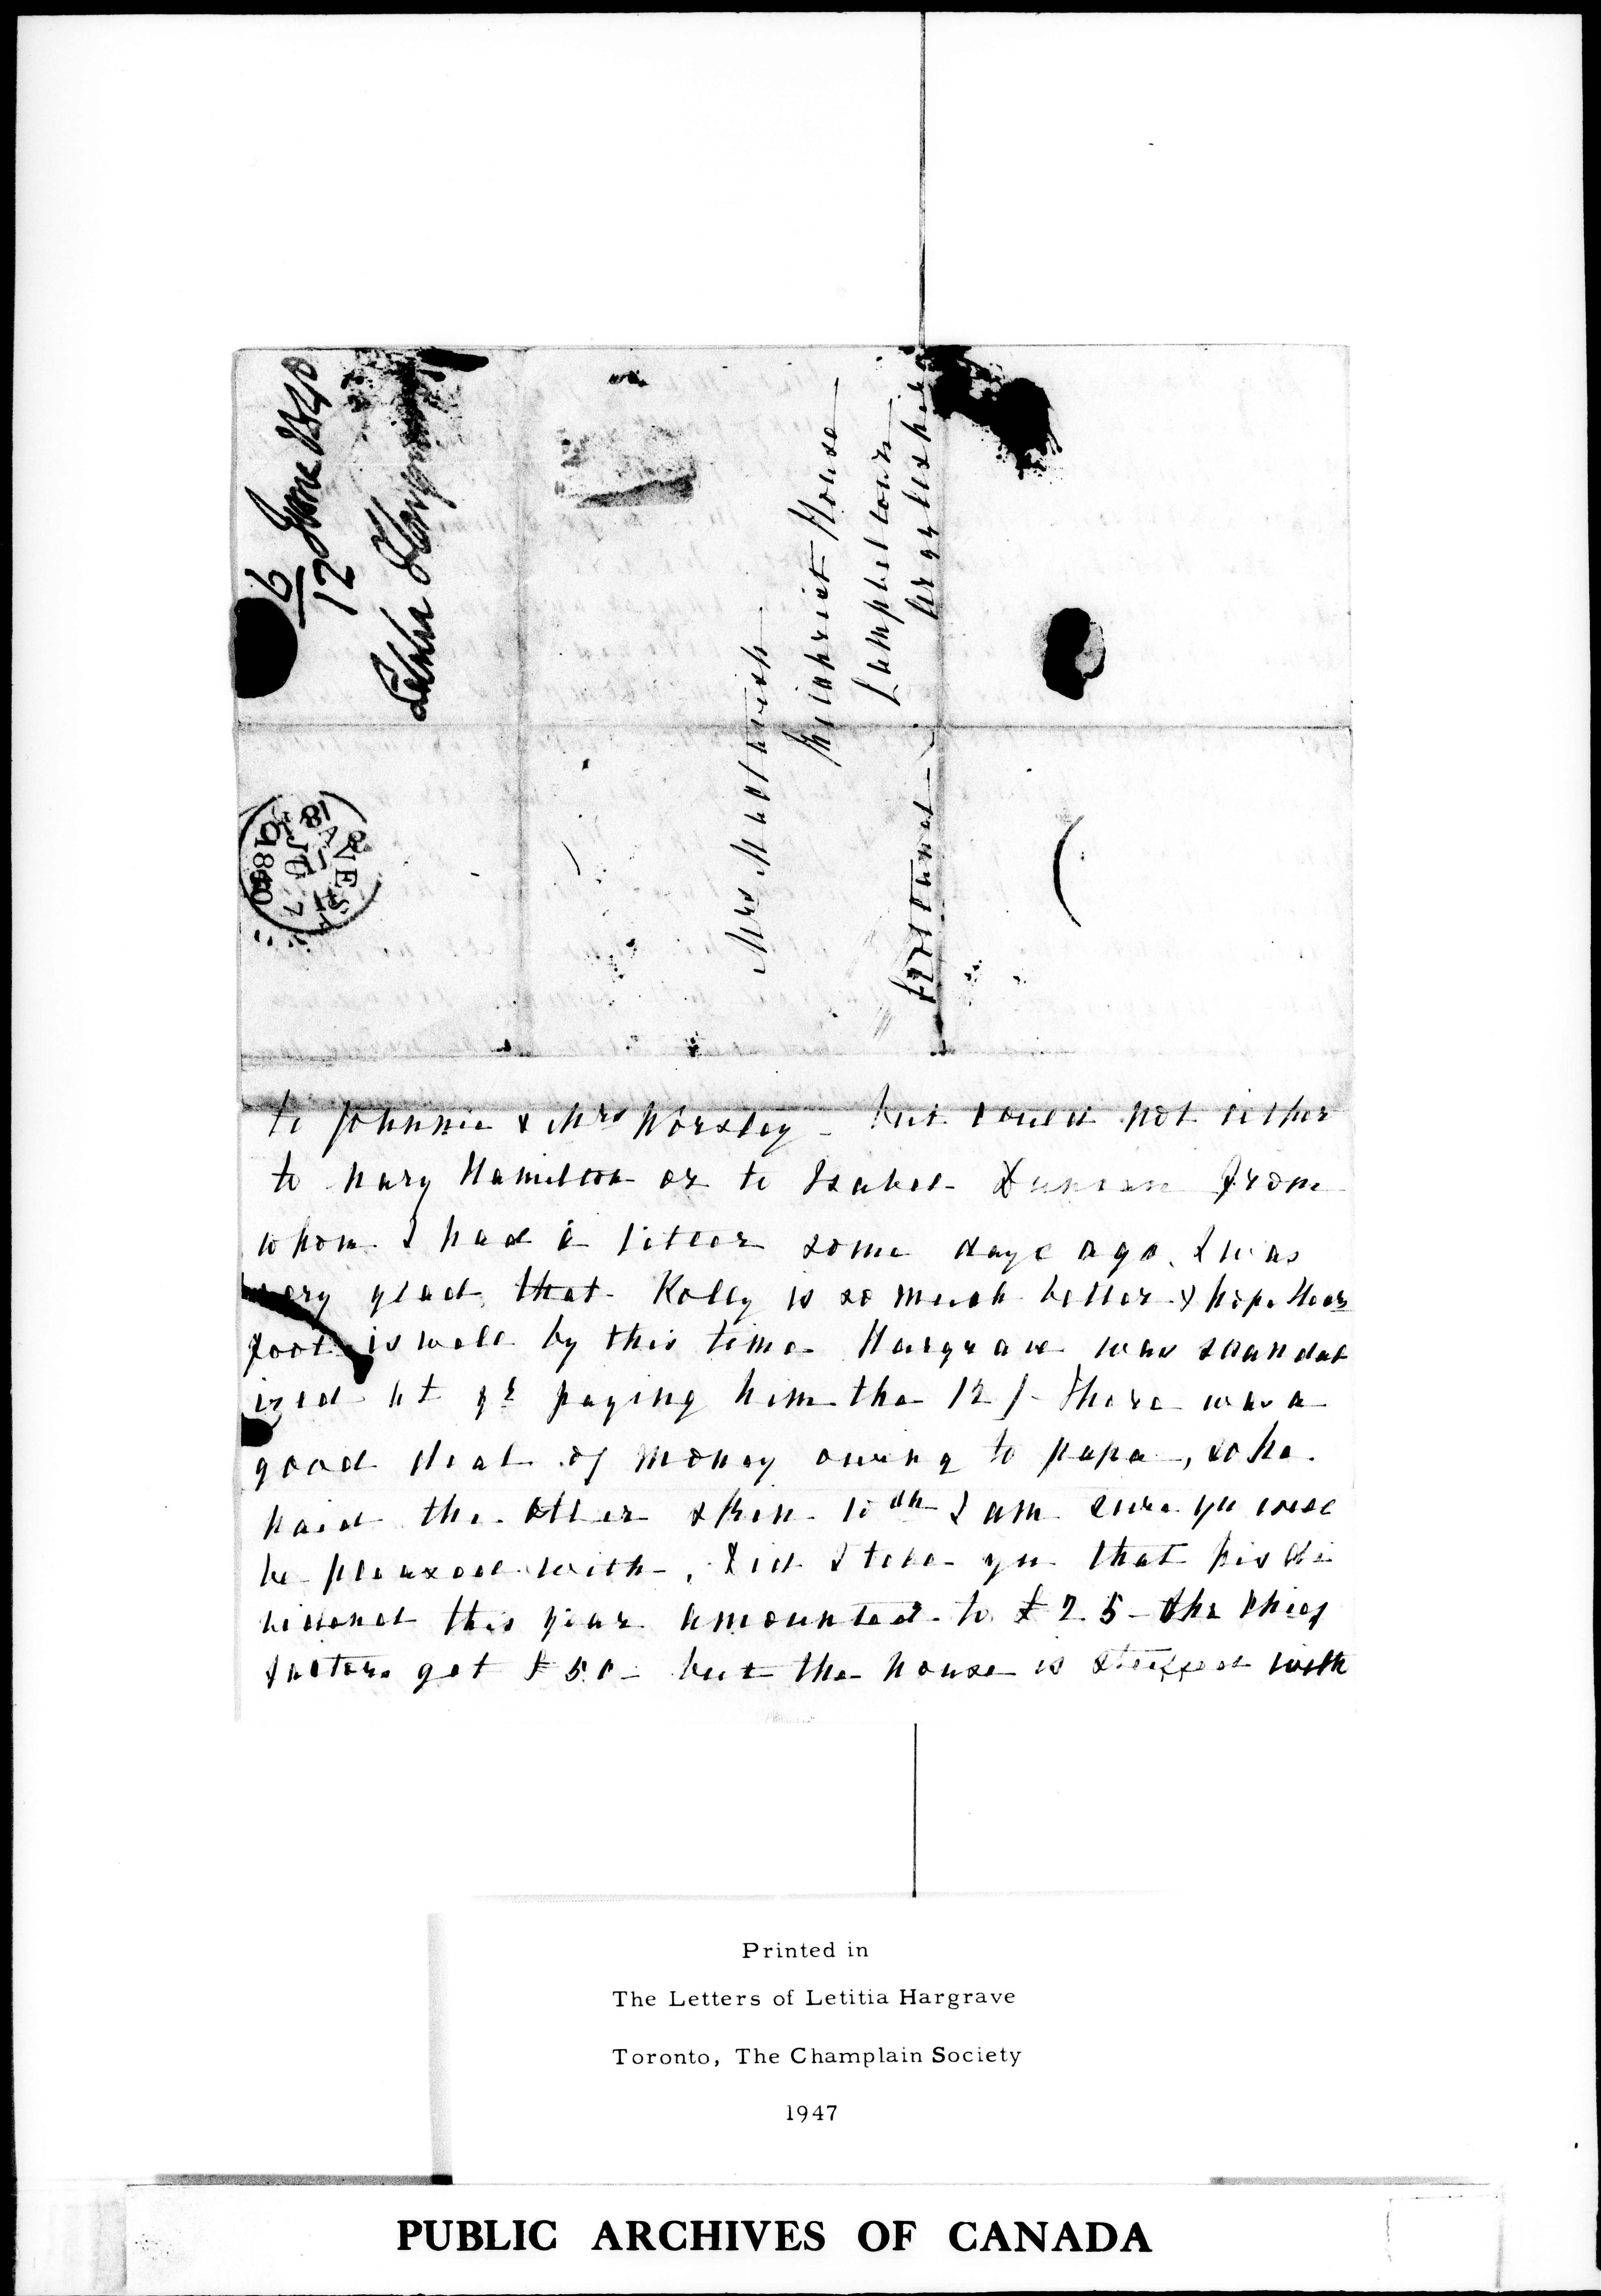 6/12 June 1840
Letitia Hargrave
Mrs Mactavish
Kilchrist House
Campbeltown
Argyleshire
Scotland
1840
to Johnnie & Mrs Worsley - but could not either
to Mary Hamilton or to Isabel Duncan from
whom I had a letter some days ago. I was
very glad that Polly is so much better & hope
foot is well by this time Hargrave was scandal
ized at yr paying him the 12/- There was a
good deal of money owing to papa, so he
paid the other skin wch I am sure yu will
be pleased with. Did I tell yu that his di
vidend this year amounted to £25 - the Chief
factors got £50 - but the house is stuffed with
Printed in
The Letters of Letitia Hargrave
Toronto, The Champlain Society
1947
PUBLIC ARCHIVES OF CANADA